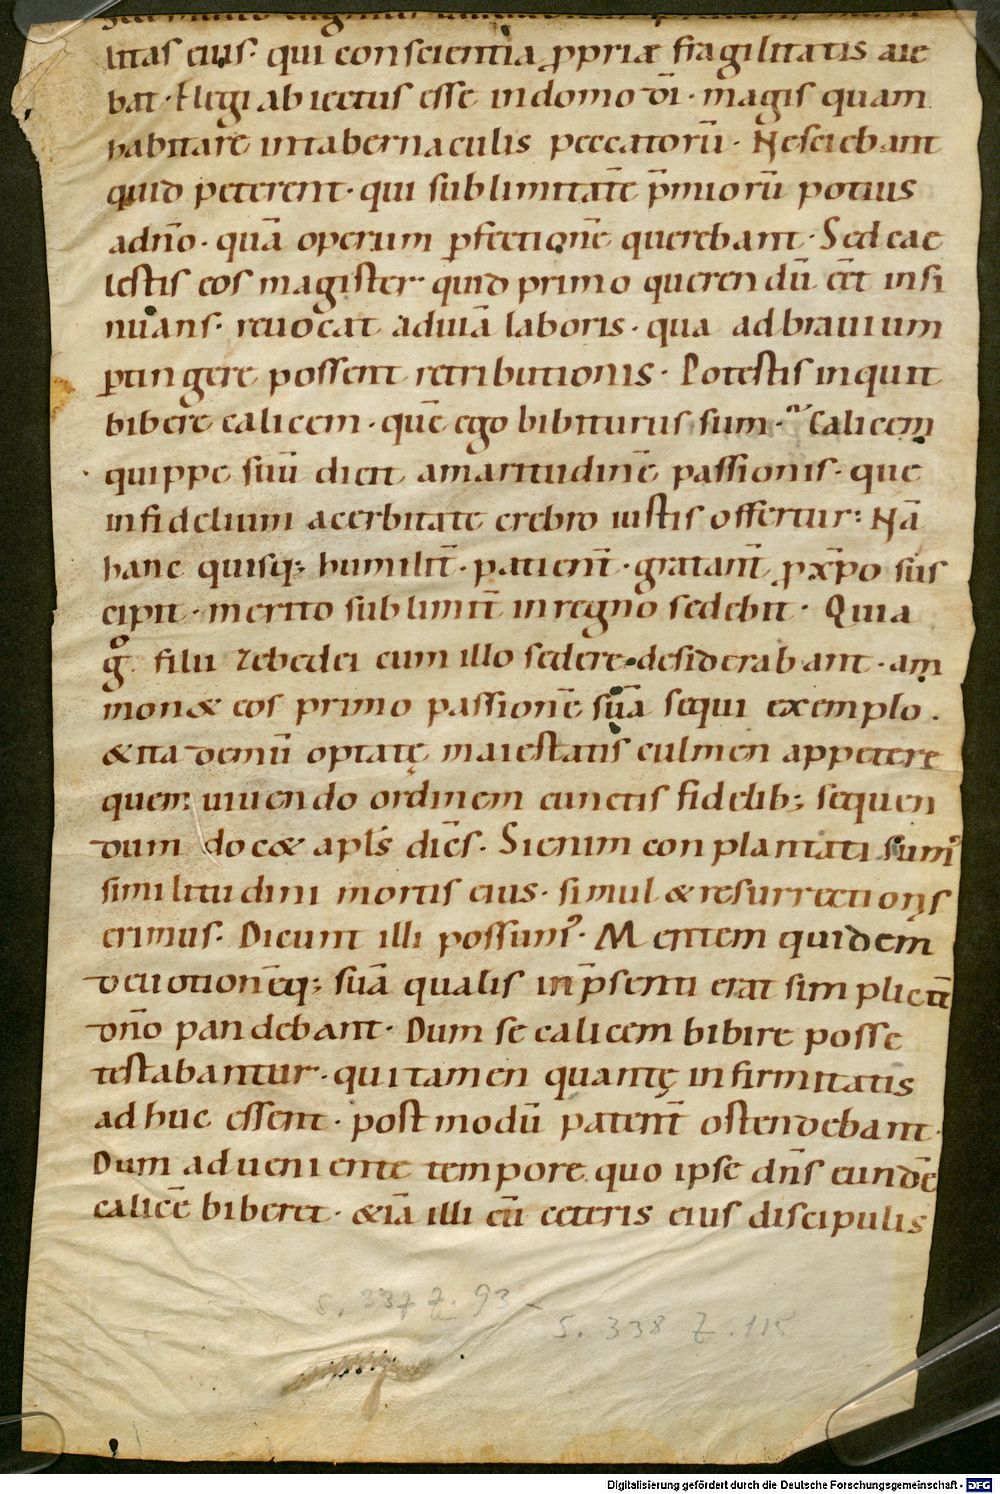 litas eius· qui conscientia ꝓpriæ fragilitatis aie
bat· Elegi abiectus esse in domo dī· magis quam
habitare in tabernaculis peccatorū· Nesciebant
quid peterent· qui sublimitatē p̄miorū potius
a dn̄o· quā operum ꝑfectionē querebant· Sed cae
lestis eos magister quid primo querendū eēt insi
nuans· reuocat ad uiā laboris· qua ad brauium
ꝑtingere possent retributionis· Potestis inquit
bibere calicem· quē ego bibiturus sum· Calicem
quippe suū dicit amaritudinē passionis· que
infidelium acerbitate crebro iustis offertur: Nā
hanc quisq; humilit̄· patient̄· gratant̄ ꝓ xp̄o sus
cipit· merito sublimit̄ in regno sedebit· Quia
gͦ filii zebedei cum illo sedere desiderabant· am
mon& eos primo passionē suā sequi exemplo.
& ita demū optatę maiestatis culmen appetere
quem uiuendo ordinem cunctis fidelib; sequen
dum doc& apl̄s dicēs· Si enim conplantati sumꝰ
similitudini mortis eius· simul & resurrectionis
erimus· Dicunt illi possumꝰ· Mentem quidem
deuotionēq; suā qualis in p̄senti erat simplicit̄
dn̄o pandebant· Dum se calicem bibere posse
testabantur· qui tamen quantę infirmitatis
adhuc essent· postmodū patent̄ ostendebant·
Dum adueniente tempore quo ipse dn̄s eundē
calicē biberet· &iā illi cū ceteris eius discipulis
S. 337 Z. 93 -
S. 338 Z. 115
Digitalisierung gefördert durch die Deutsche Forschungsgemeinschaft - DFG